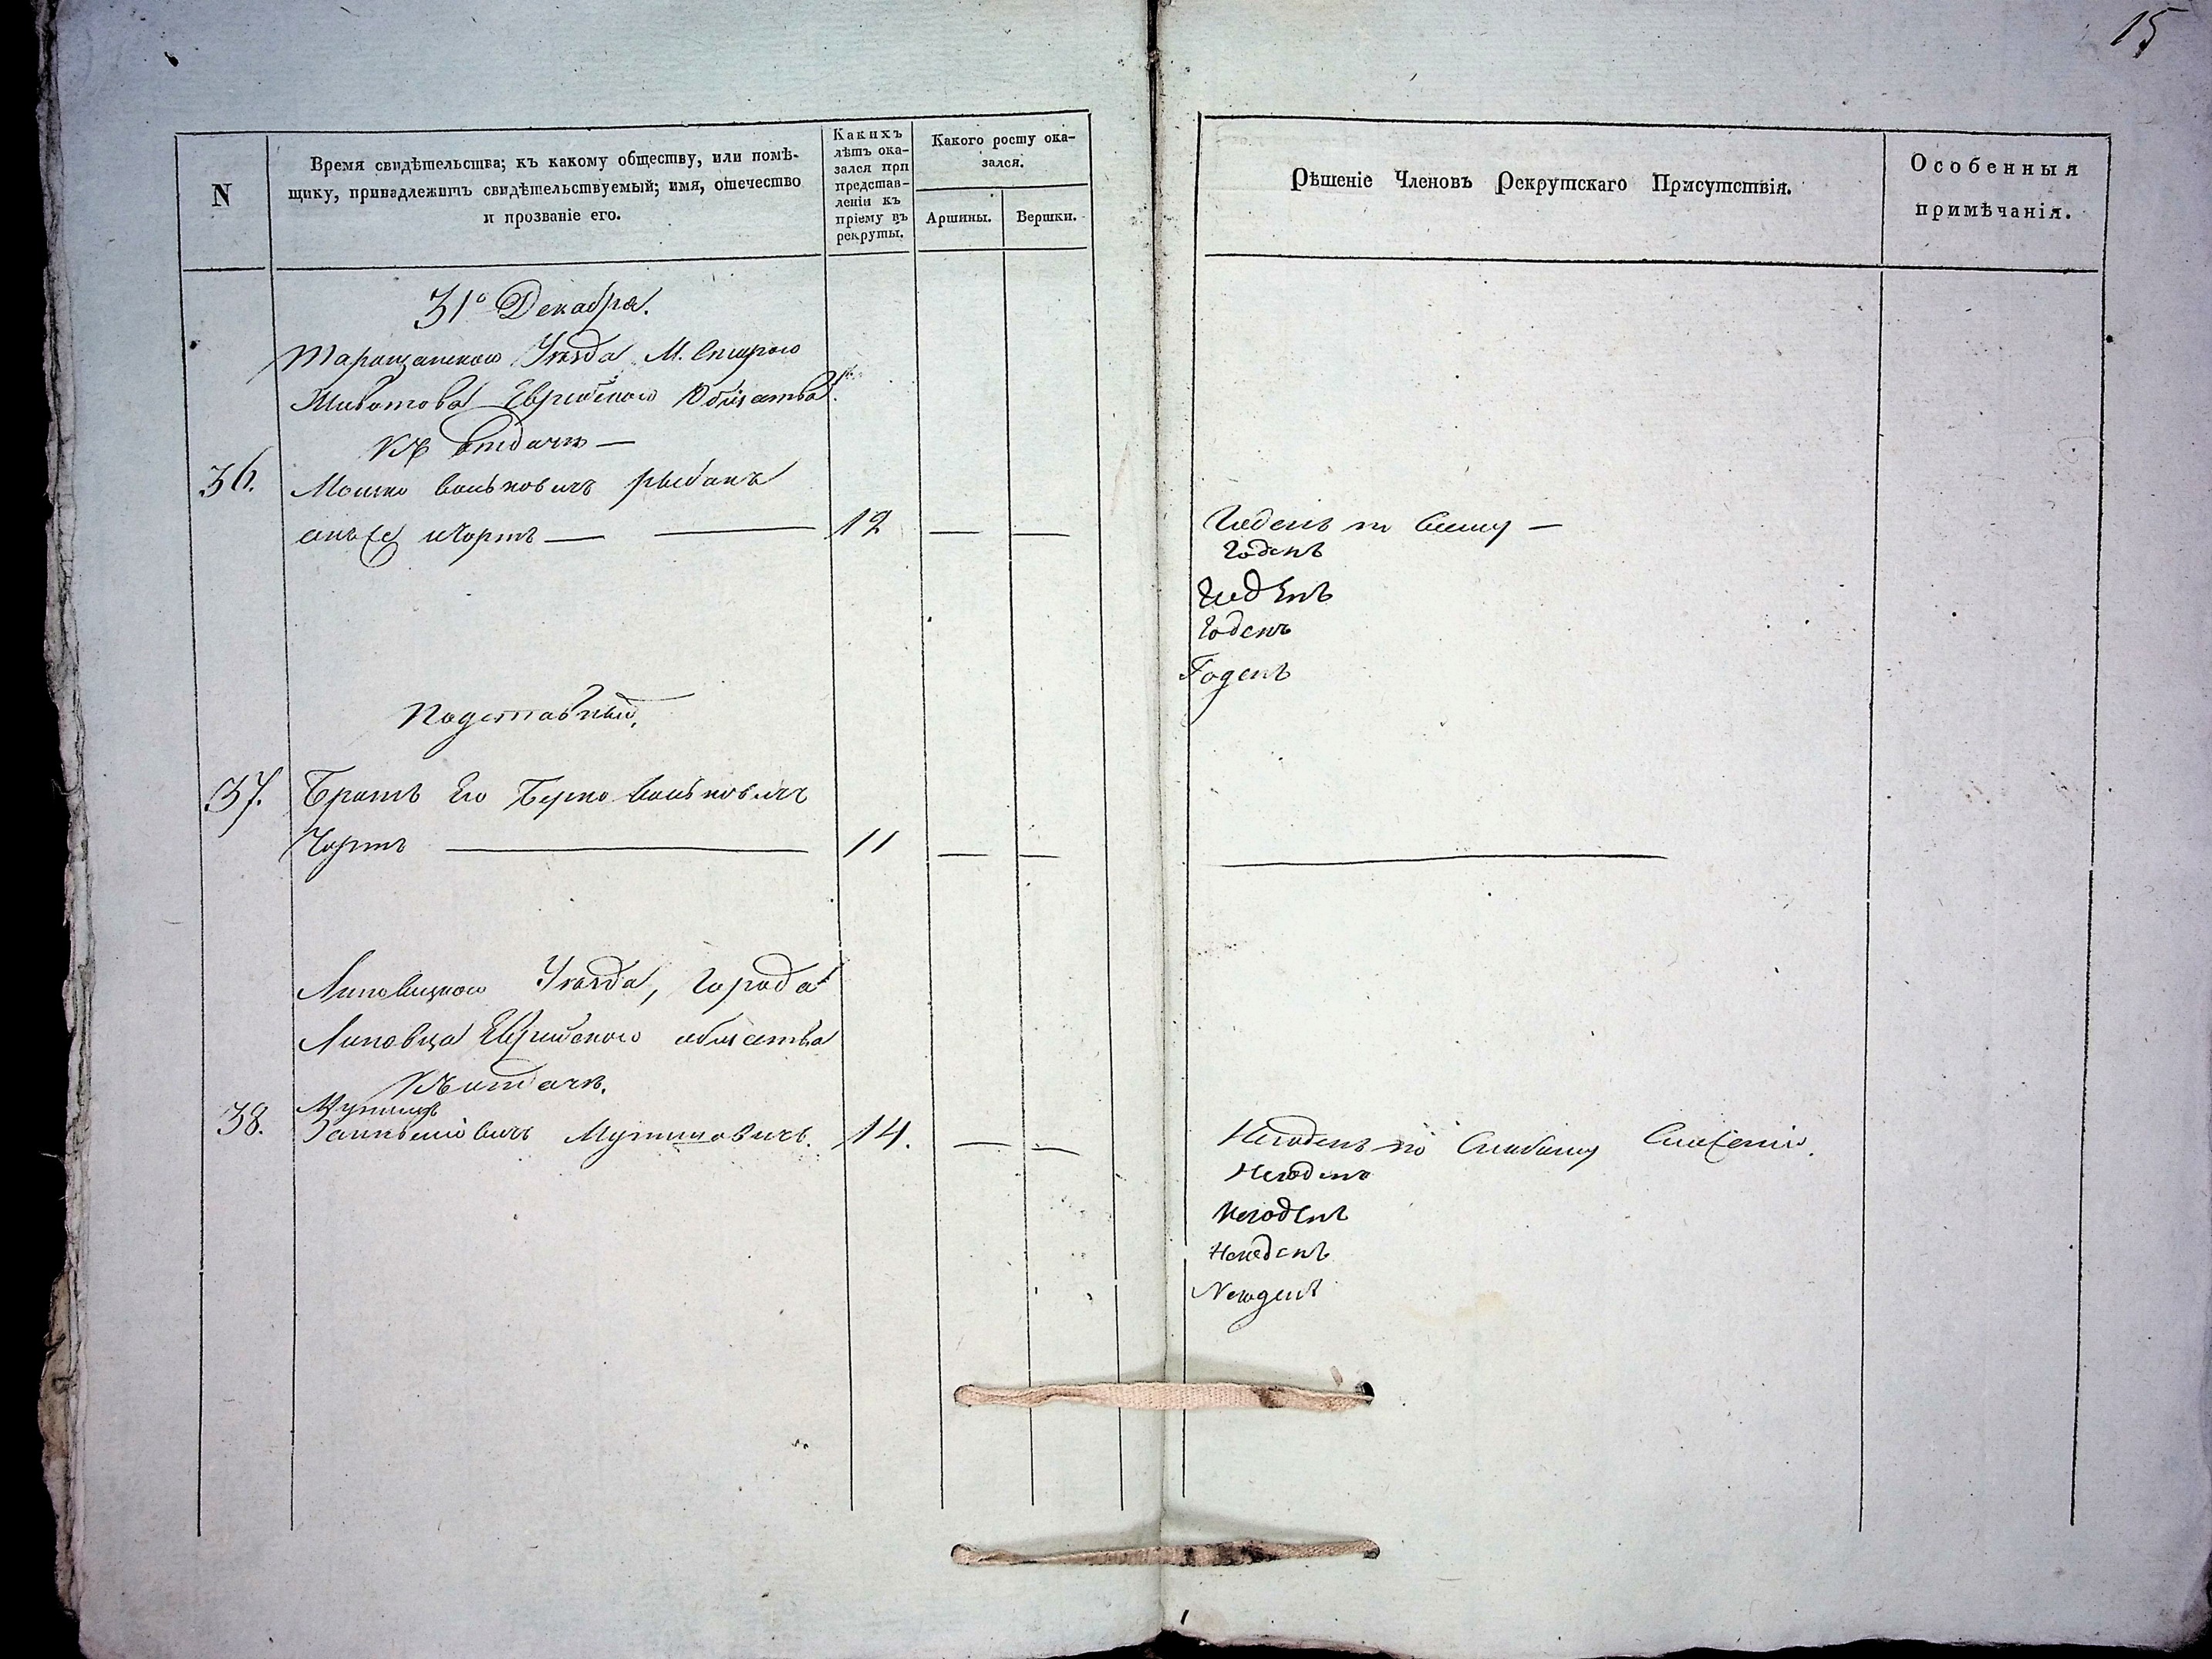 15
N
Время свидѣтельства; къ какому обществу, или помѣ-
щику, принадлежитъ свидѣтельствуемый; имя, отечество
и прозваніе его.
Какихъ
лѣтъ ока-
зался при
представ-
леніи къ
пріему въ
рекруты.
Какого росту ока-
зался.
Аршины.
Вершки.
Рѣшеніе Членовъ Рекрутскаго Присутствія.
Особенныя
примѣчанія.
31о Декабря.
Таращанскаго Уѣзда М. Старого
Животова Еврейскаго Общества
Къ отдачѣ —
36. Мошко Вольковичъ рыбакъ
онъ же Чортъ — 12 — —
Годенъ по всему —
Годенъ
Годенъ
Годенъ
Годенъ
Подставный,
37. Братъ Его Берко Вольковичъ
Чортъ — 11 — —
Липовецкаго Уѣзда, города
Липовца Еврейскаго общества
Къ отдачѣ.
38.
Мутиновичъ. 14. — —
Негоденъ по слабому сложенію.
Негоденъ
Негоденъ
Негоденъ
Негоденъ